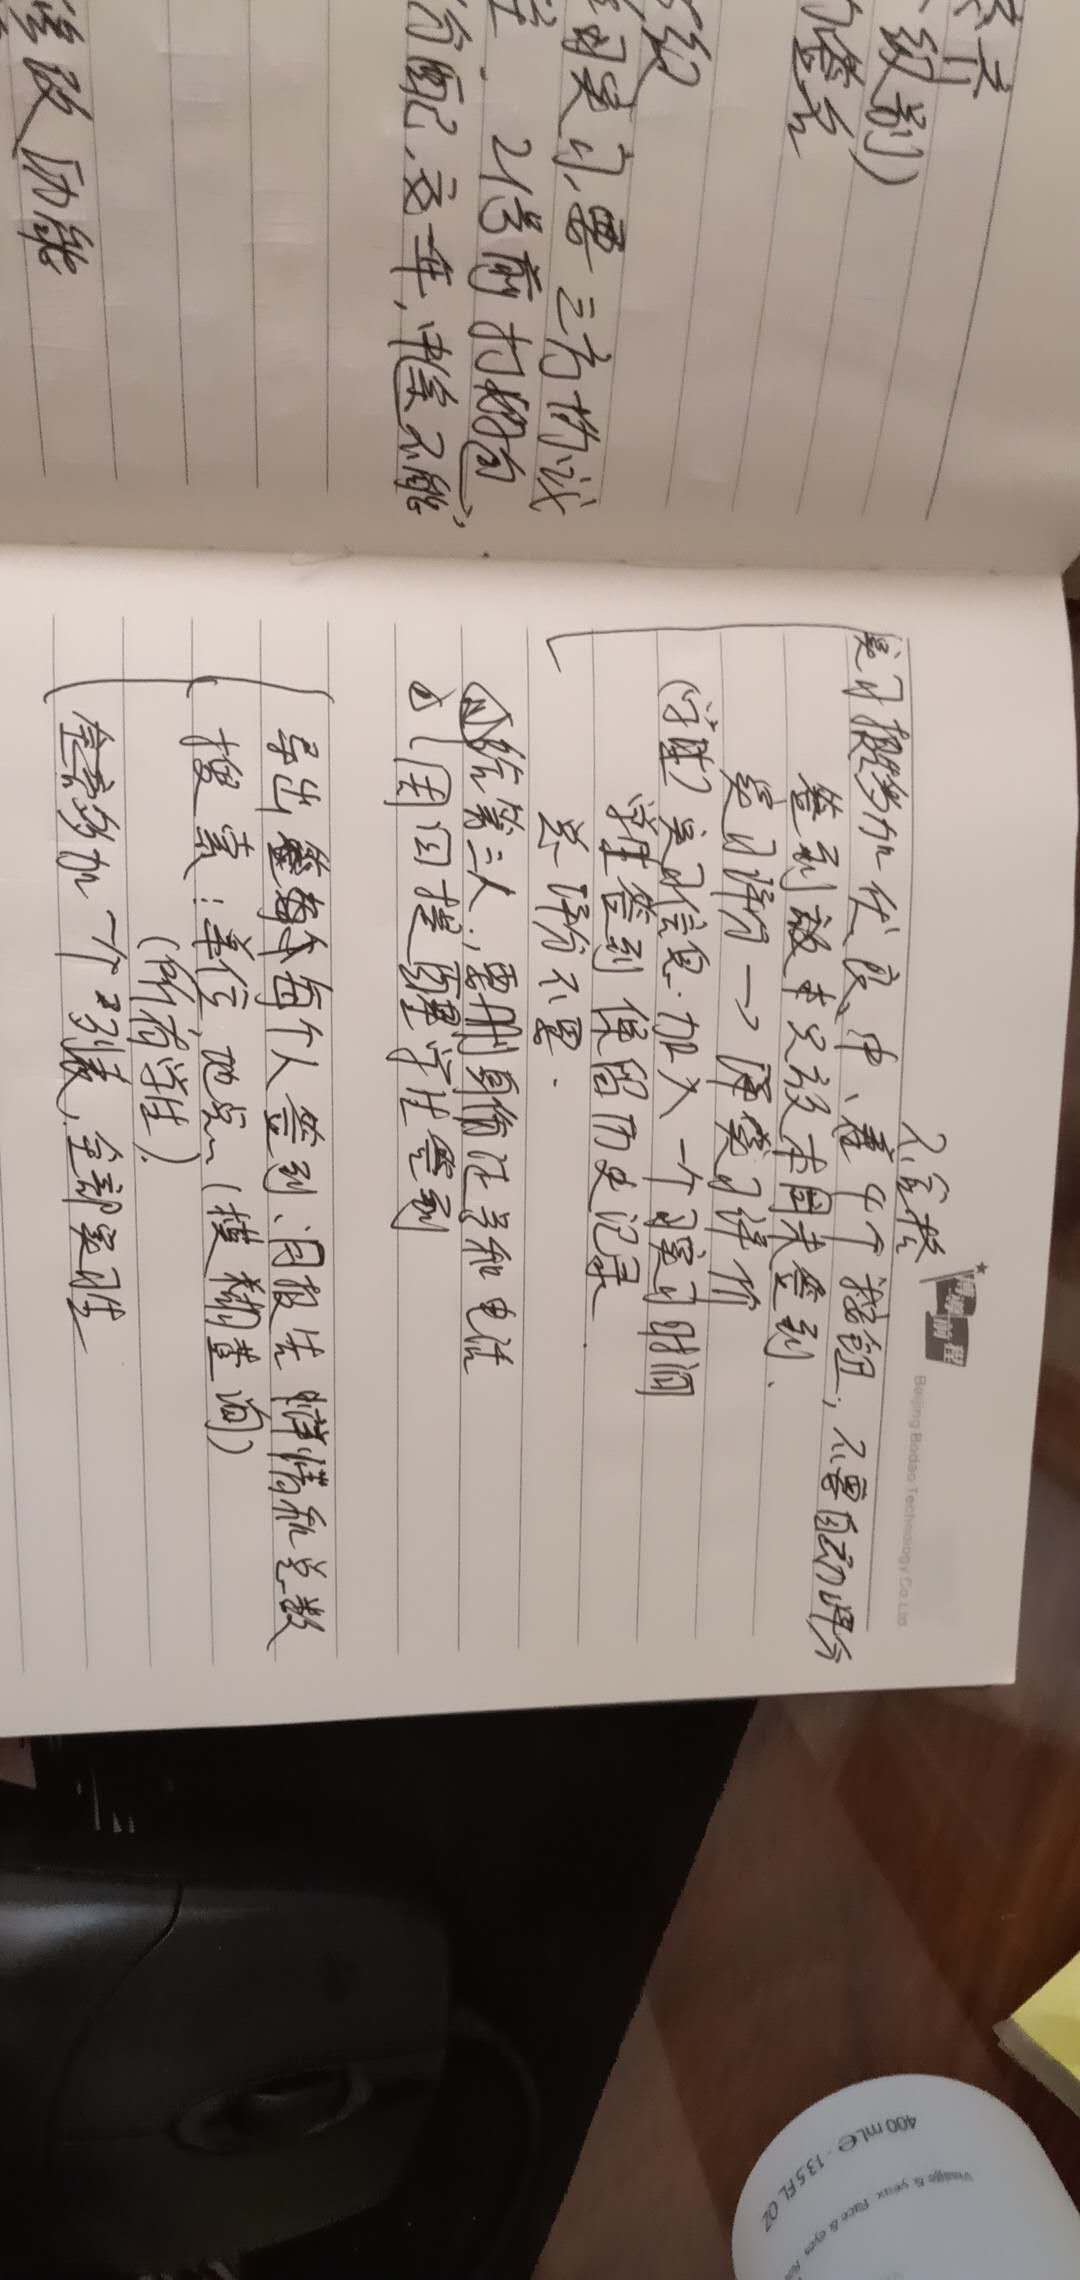 齐
级别)
签名
级
实习,要三方协议
21号前打好包,
分配,交一年,中途不能
修改功能
博導前程
Beijing Bodao Technology Co.Ltd
不合格
实习报告多加优、良、中、差4个按钮,不要自动评分
签到放本只放本周未签到.
实习评分→ 实习评价
(学生)实习信息.加入一个实习时间
学生签到保留历史记录.
总评分不要.
给第三人,要删身份证号和电话
周日提醒学生签到
导出 每个人签到、月报告 详情和总数
搜索:单位,地点、(模糊查询)
(所有学生).
多加一个列表,全部实习生
Visage & yeux. Face & eyes
400 mLe - 13.5 FL OZ